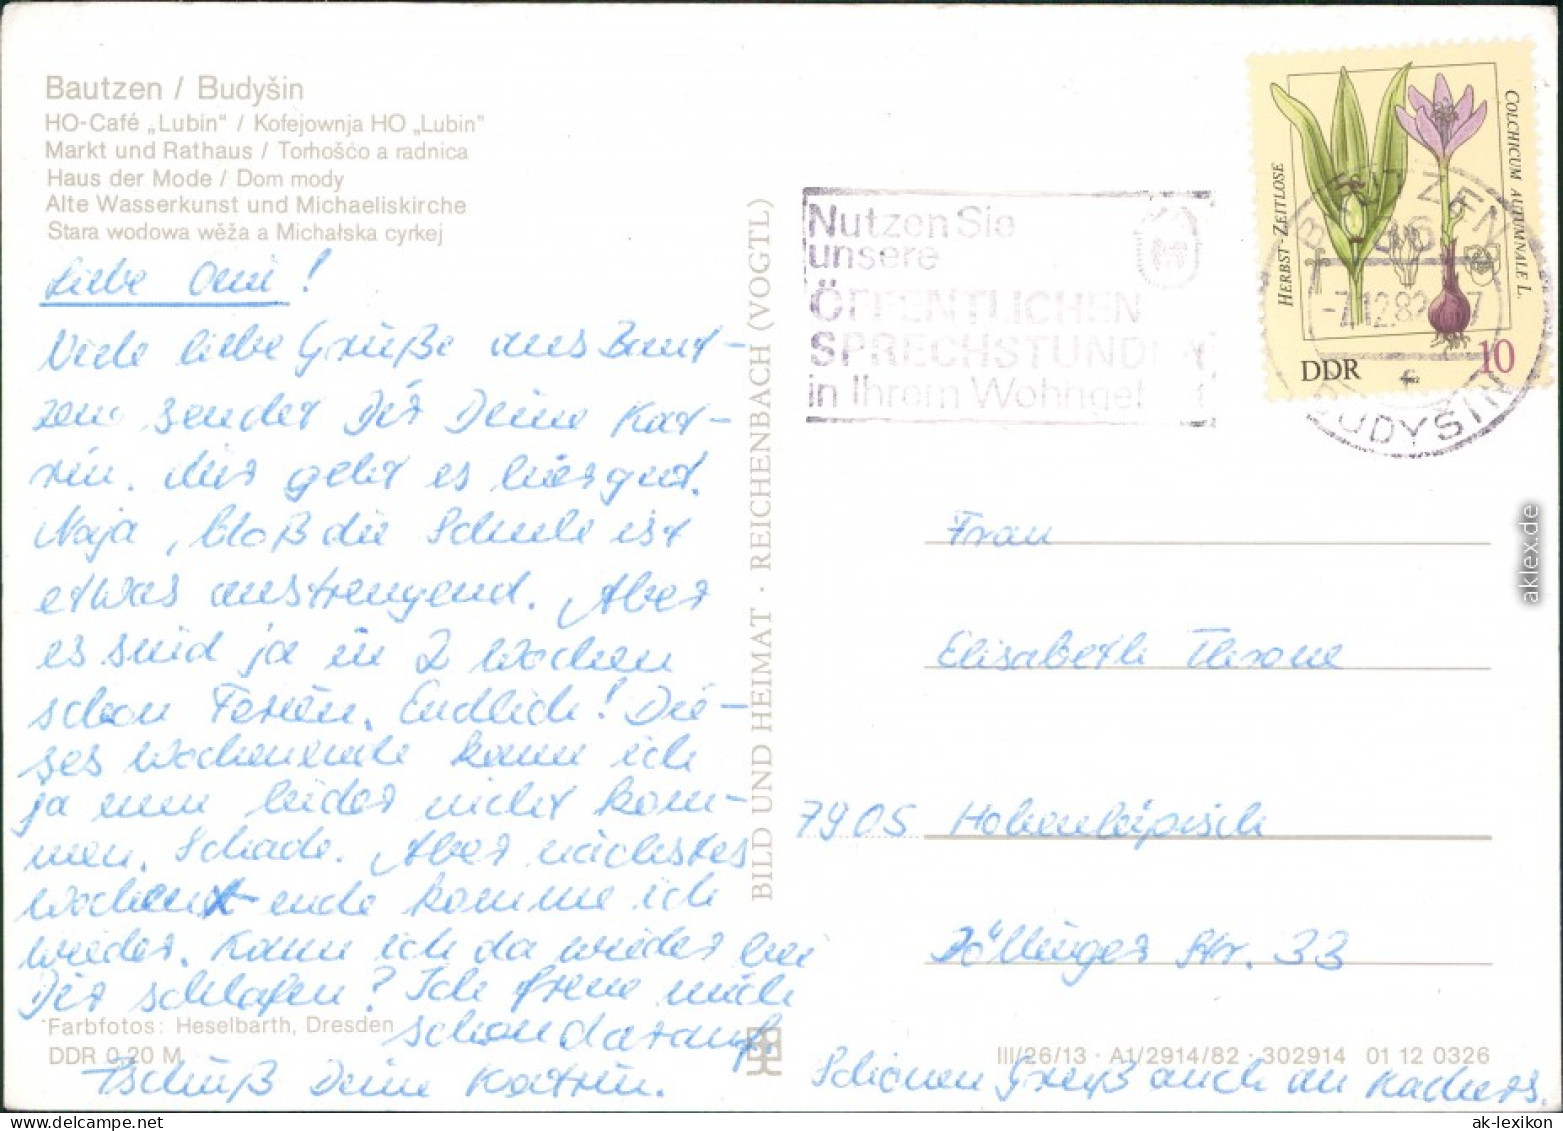 Bautzen / Budyšin
HO-Café „Lubin“ / Kofejownja HO „Lubin“
Markt und Rathaus / Torhošćo a radnica
Haus der Mode / Dom mody
Alte Wasserkunst und Michaeliskirche
Stara wodowa wěža a Michałska cyrkej
Liebe Omi!
Viele liebe Grüße aus Baut-
zen sendet Dir Deine Kat-
rin. Mir geht es hier gut.
Naja, bloß die Schule ist
etwas anstrengend. Aber
es sind ja in 2 Wochen
schon Ferien. Endlich! Die-
ses Wochenende kann ich
ja nun leider nicht kom-
men. Schade. Aber nächstes
Wochenende komme ich
wieder. Kann ich da wieder bei
Dir schlafen? Ich freue mich
schon darauf.
Tschüß Deine Katrin.
Farbfotos: Heselbarth, Dresden
DDR 0,20 M
BILD UND HEIMAT · REICHENBACH (VOGTL)
Nutzen Sie
unsere
ÖFFENTLICHEN
SPRECHSTUNDEN
in Ihrem Wohngebiet
HERBST-ZEITLOSE
COLCHICUM AUTUMNALE L.
DDR
10
BAUTZEN
-7.12.82
BUDYŠIN
Frau
Elisabeth Throne
7905 Hohenleipisch
Döllinger Str. 33
III/26/13 · A1/2914/82 · 302914 01 12 0326
Schönen Gruß auch an Kachers.
aklex.de
ak-lexikon